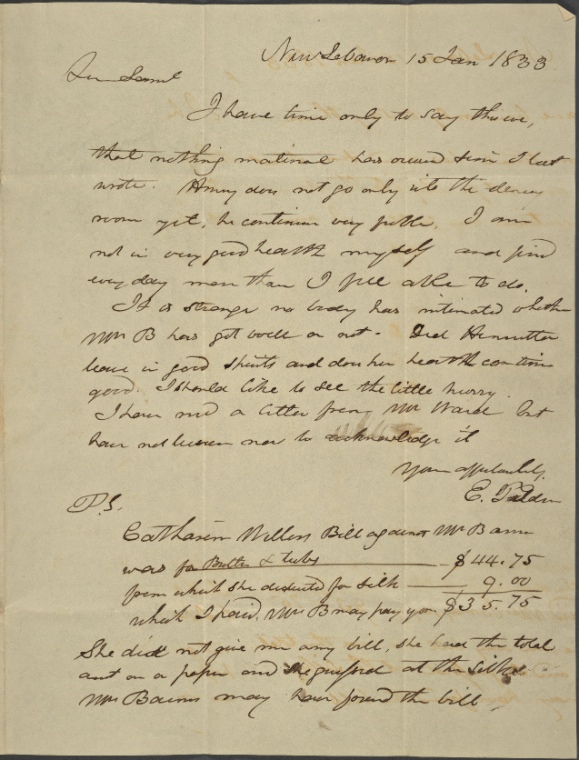 New Lebanon 15 Jan 1833
Dear Samuel
I have time only to say
that nothing material has occured since I last
wrote. Henry does not go only into the dining
room yet, he continues very feeble. I am
not in very good health myself and find
every day more than I feel able to do.
It is strange no body has intimated whether
Mrs B has got well or not - Did Henrietta
leave in good spirits and does her health continue
good. I should like to see the little
I have recd a letter from Mr Ward but
have not leisure now to acknowledge it
Yours affectionately,
E. Tilden
P.S.
Catharine Millers Bill against Mr Barns
was for Butter & tubs $44.75
from which she deducted for silk 9.00
which I paid, Mrs B may pay you $35.75
She did not give me any bill, she had the total
amt on a paper and she at the
Mrs Barns may have found the bill